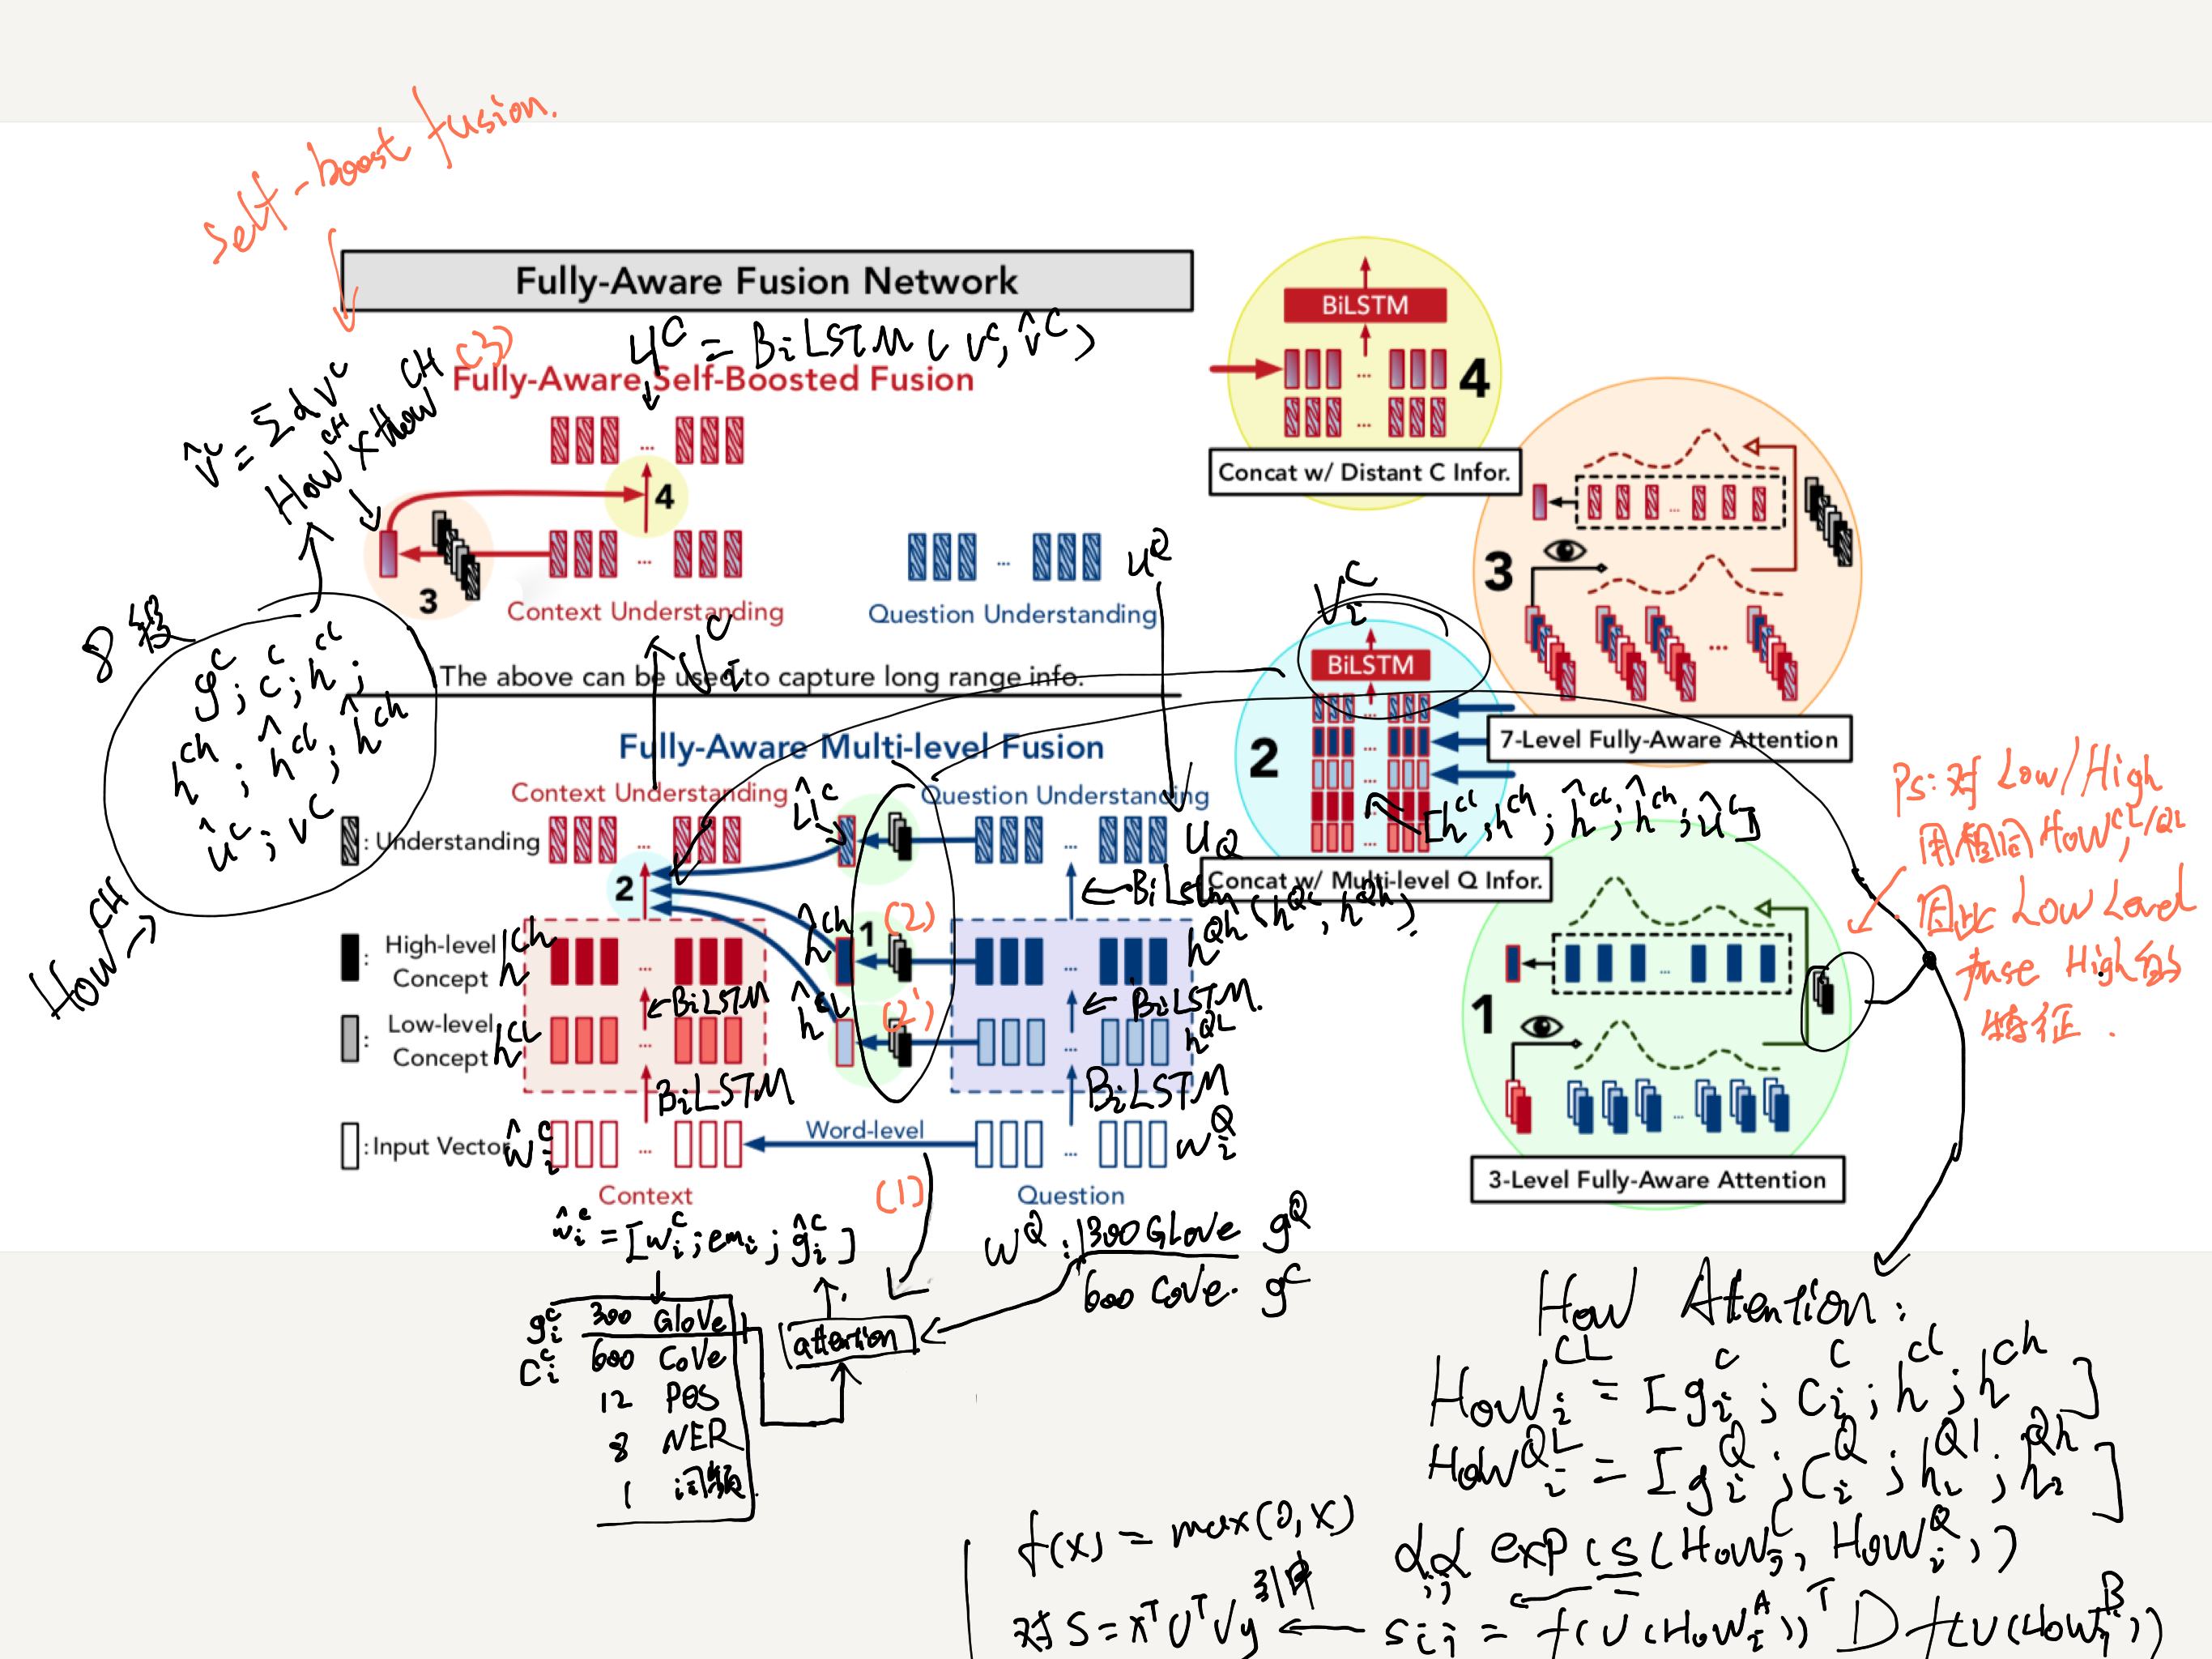 Self-boost fusion.
Fully-Aware Fusion Network
(3)
u^C = BiLSTM(v^C, v̂^C)
Fully-Aware Self-Boosted Fusion
v̂^C = Σαv^C
HoW^CH × HoW^CH
...
4
...
3
Context Understanding
...
Question Understanding
u^Q
8级
g^C; c^C; h^cl;
h^ch; ĥ^cl; ĥ^ch
û^C; v^C
HoW^CH
The above can be used to capture long range info.
v_i^C
Fully-Aware Multi-level Fusion
Context Understanding
û^C
Question Understanding
: Understanding
...
...
u^Q
2
← BiLstm (h^Ql, h^Qh).
: High-level Concept
h^ch
...
ĥ^ch
1
(2)
...
h^Qh
← BiLSTM
← BiLSTM.
: Low-level Concept
h^cL
...
ĥ^cL
(2')
...
h^QL
BiLSTM
BiLSTM
: Input Vector
ŵ_i^C
...
Word-level
...
w_i^Q
Context
(1)
Question
ŵ_i^C = [w_i^C; em_i; ĝ_i^C]
w^Q: 300 GloVe g^Q
600 CoVe. g^C
g_i^C 300 GloVe
c_i^C 600 CoVe
12 POS
8 NER
1 词频
attention
BiLSTM
...
4
...
Concat w/ Distant C Infor.
...
3
...
7-Level Fully-Aware Attention
v_i^C
BiLSTM
2
[h^cl, h^ch; ĥ^cl; ĥ^ch; û^C]
Concat w/ Multi-level Q Infor.
...
1
...
3-Level Fully-Aware Attention
Ps: 对 Low/High
用相同HoW^CL/QL,
因此 Low Level
fuse High的
特征.
HoW Attention:
HoW_i^CL = [g_i^C; c_i^C; h^cl; h^ch]
HoW_i^QL = [g_i^Q; c_i^Q; h_i^Ql; h_i^Qh]
f(x) = max(0, x)
α_ij ∝ exp(s(HoW_i^C, HoW_j^Q))
对 S = x^T U^T V y
← s_ij = f(U(HoW_i^A))^T D f(U(HoW_j^B))